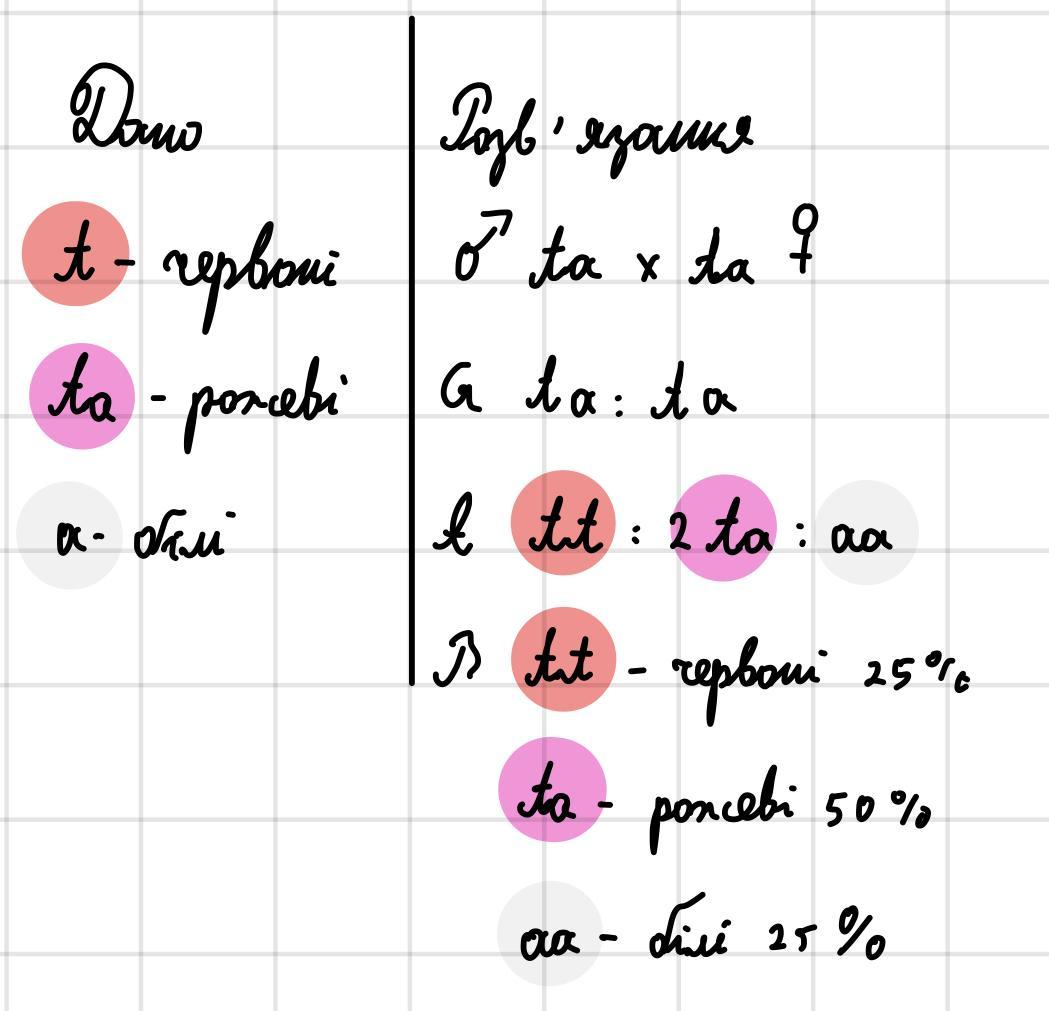 Дано
t - червоні
ta - рожеві
a - білі
Розв'язання
♂ ta x ta ♀
G ta : ta
t tt : 2 ta : aa
В tt - червоні 25%
ta - рожеві 50%
aa - білі 25%